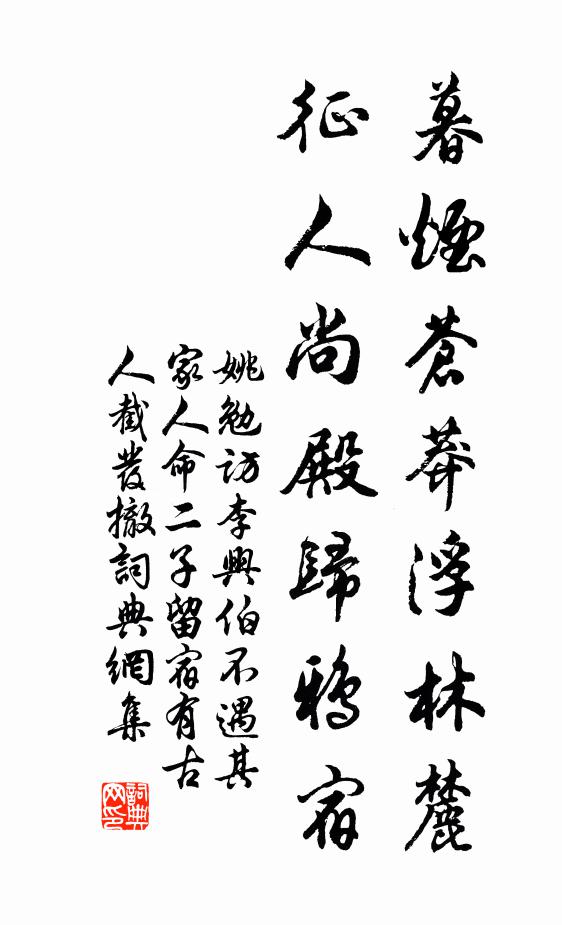 暮煙蒼莽浮林麓
征人尚殿歸鴉宿
姚勉訪李興伯不遇其
家人命二子留宿有古
人截髮撤詞典網集
詞典
网印